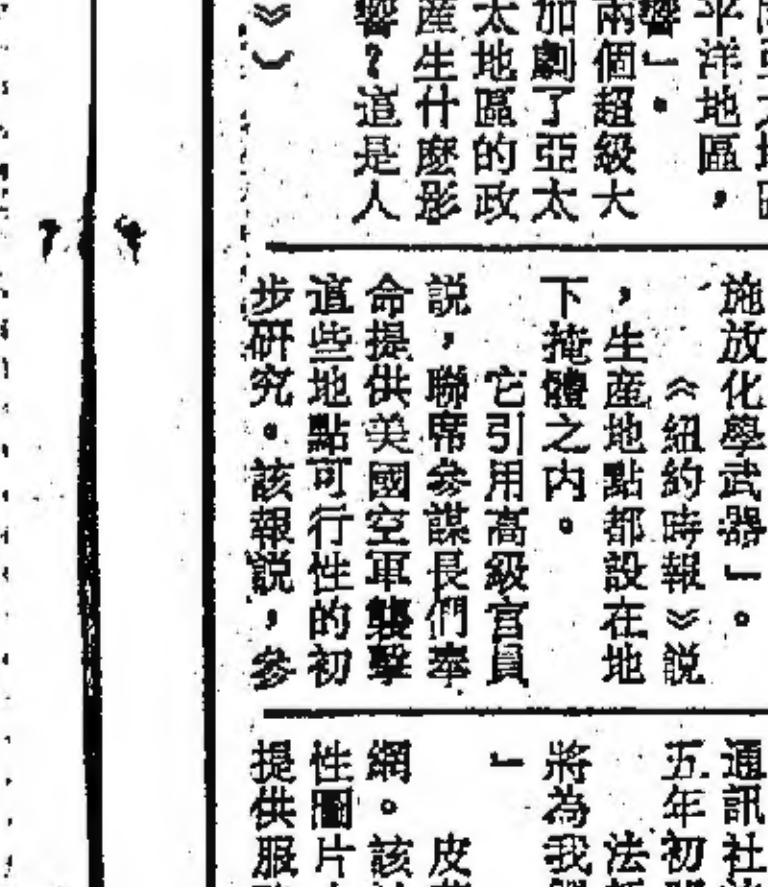 平洋地區，
響」。
兩個超級大
加劇了亞太
太地區的政
產生什麽影
響？這是人
》）
施放化學武器」。
《紐約時報》説
，生產地點都設在地
下掩體之内。
它引用高級官員
説，聯席參謀長們奉
命提供美國空軍襲擊
這些地點可行性的初
步研究。該報説，參
通訊社
五年初
法
將為我
」
皮
網。該
性圖片
提供服